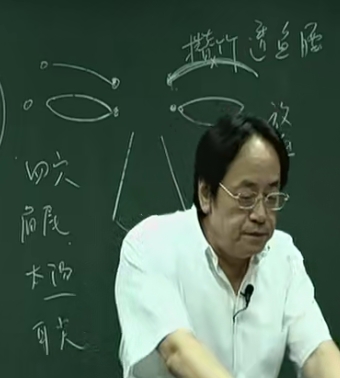 攢竹透鱼腰
放
四穴
眉尾
太阳
耳尖